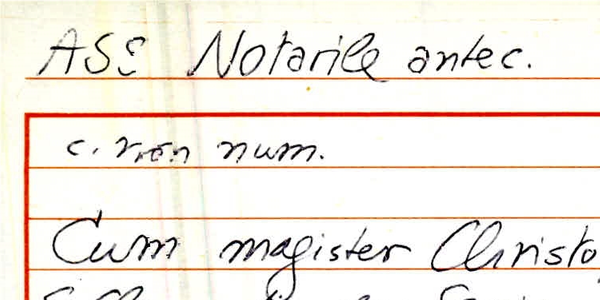 ASS Notarile antec.
c. non num.
Cum magister Christo